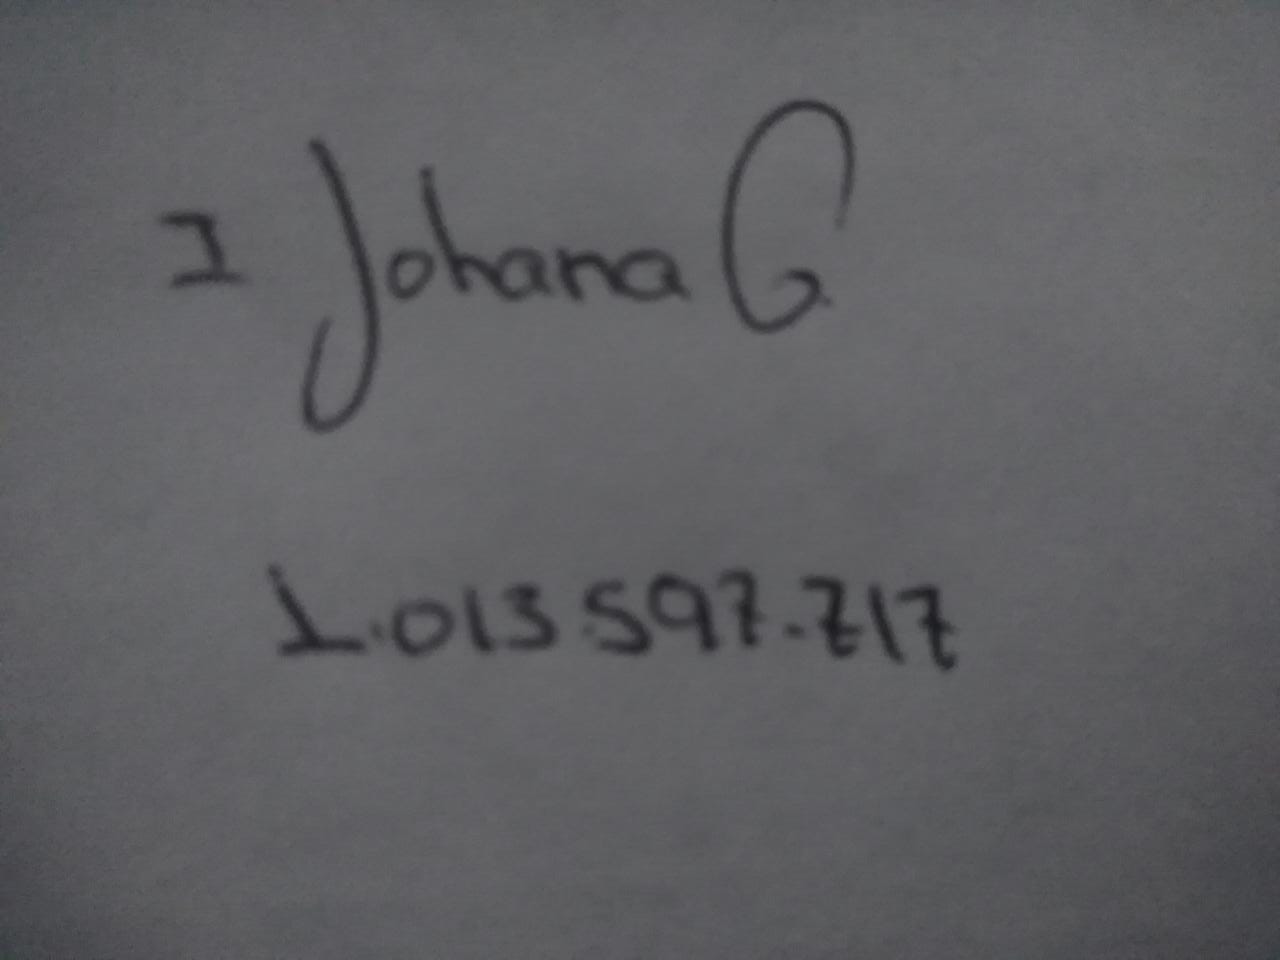 I Johana G
1.013.597.717